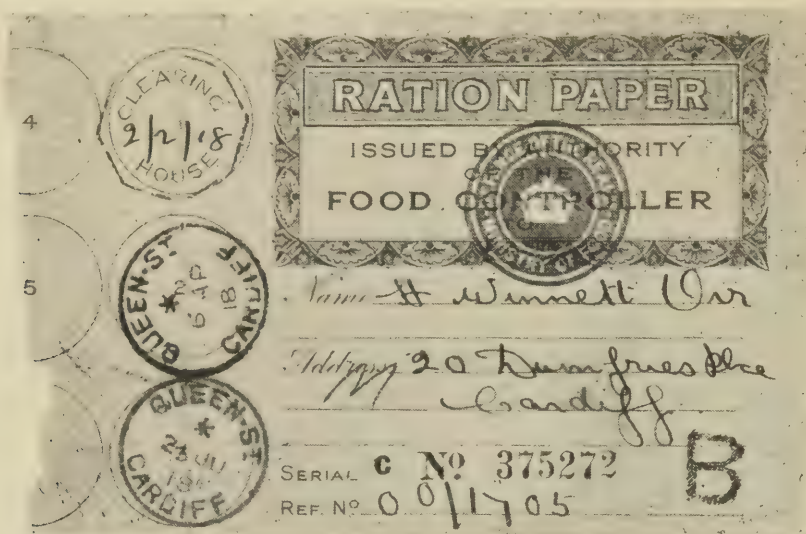 4
CLEARING
2/2/18
HOUSE
5
QUEEN-ST
*
6 AP
18
CARDIFF
QUEEN-ST
*
23 JU
18
CARDIFF
RATION PAPER
ISSUED BY AUTHORITY
OF THE
FOOD CONTROLLER
MINISTRY OF
Name H Winnett Orr
Address 20 Dumfries Plce
Cardiff
SERIAL C Nº 375272
REF. Nº 00/1705
B